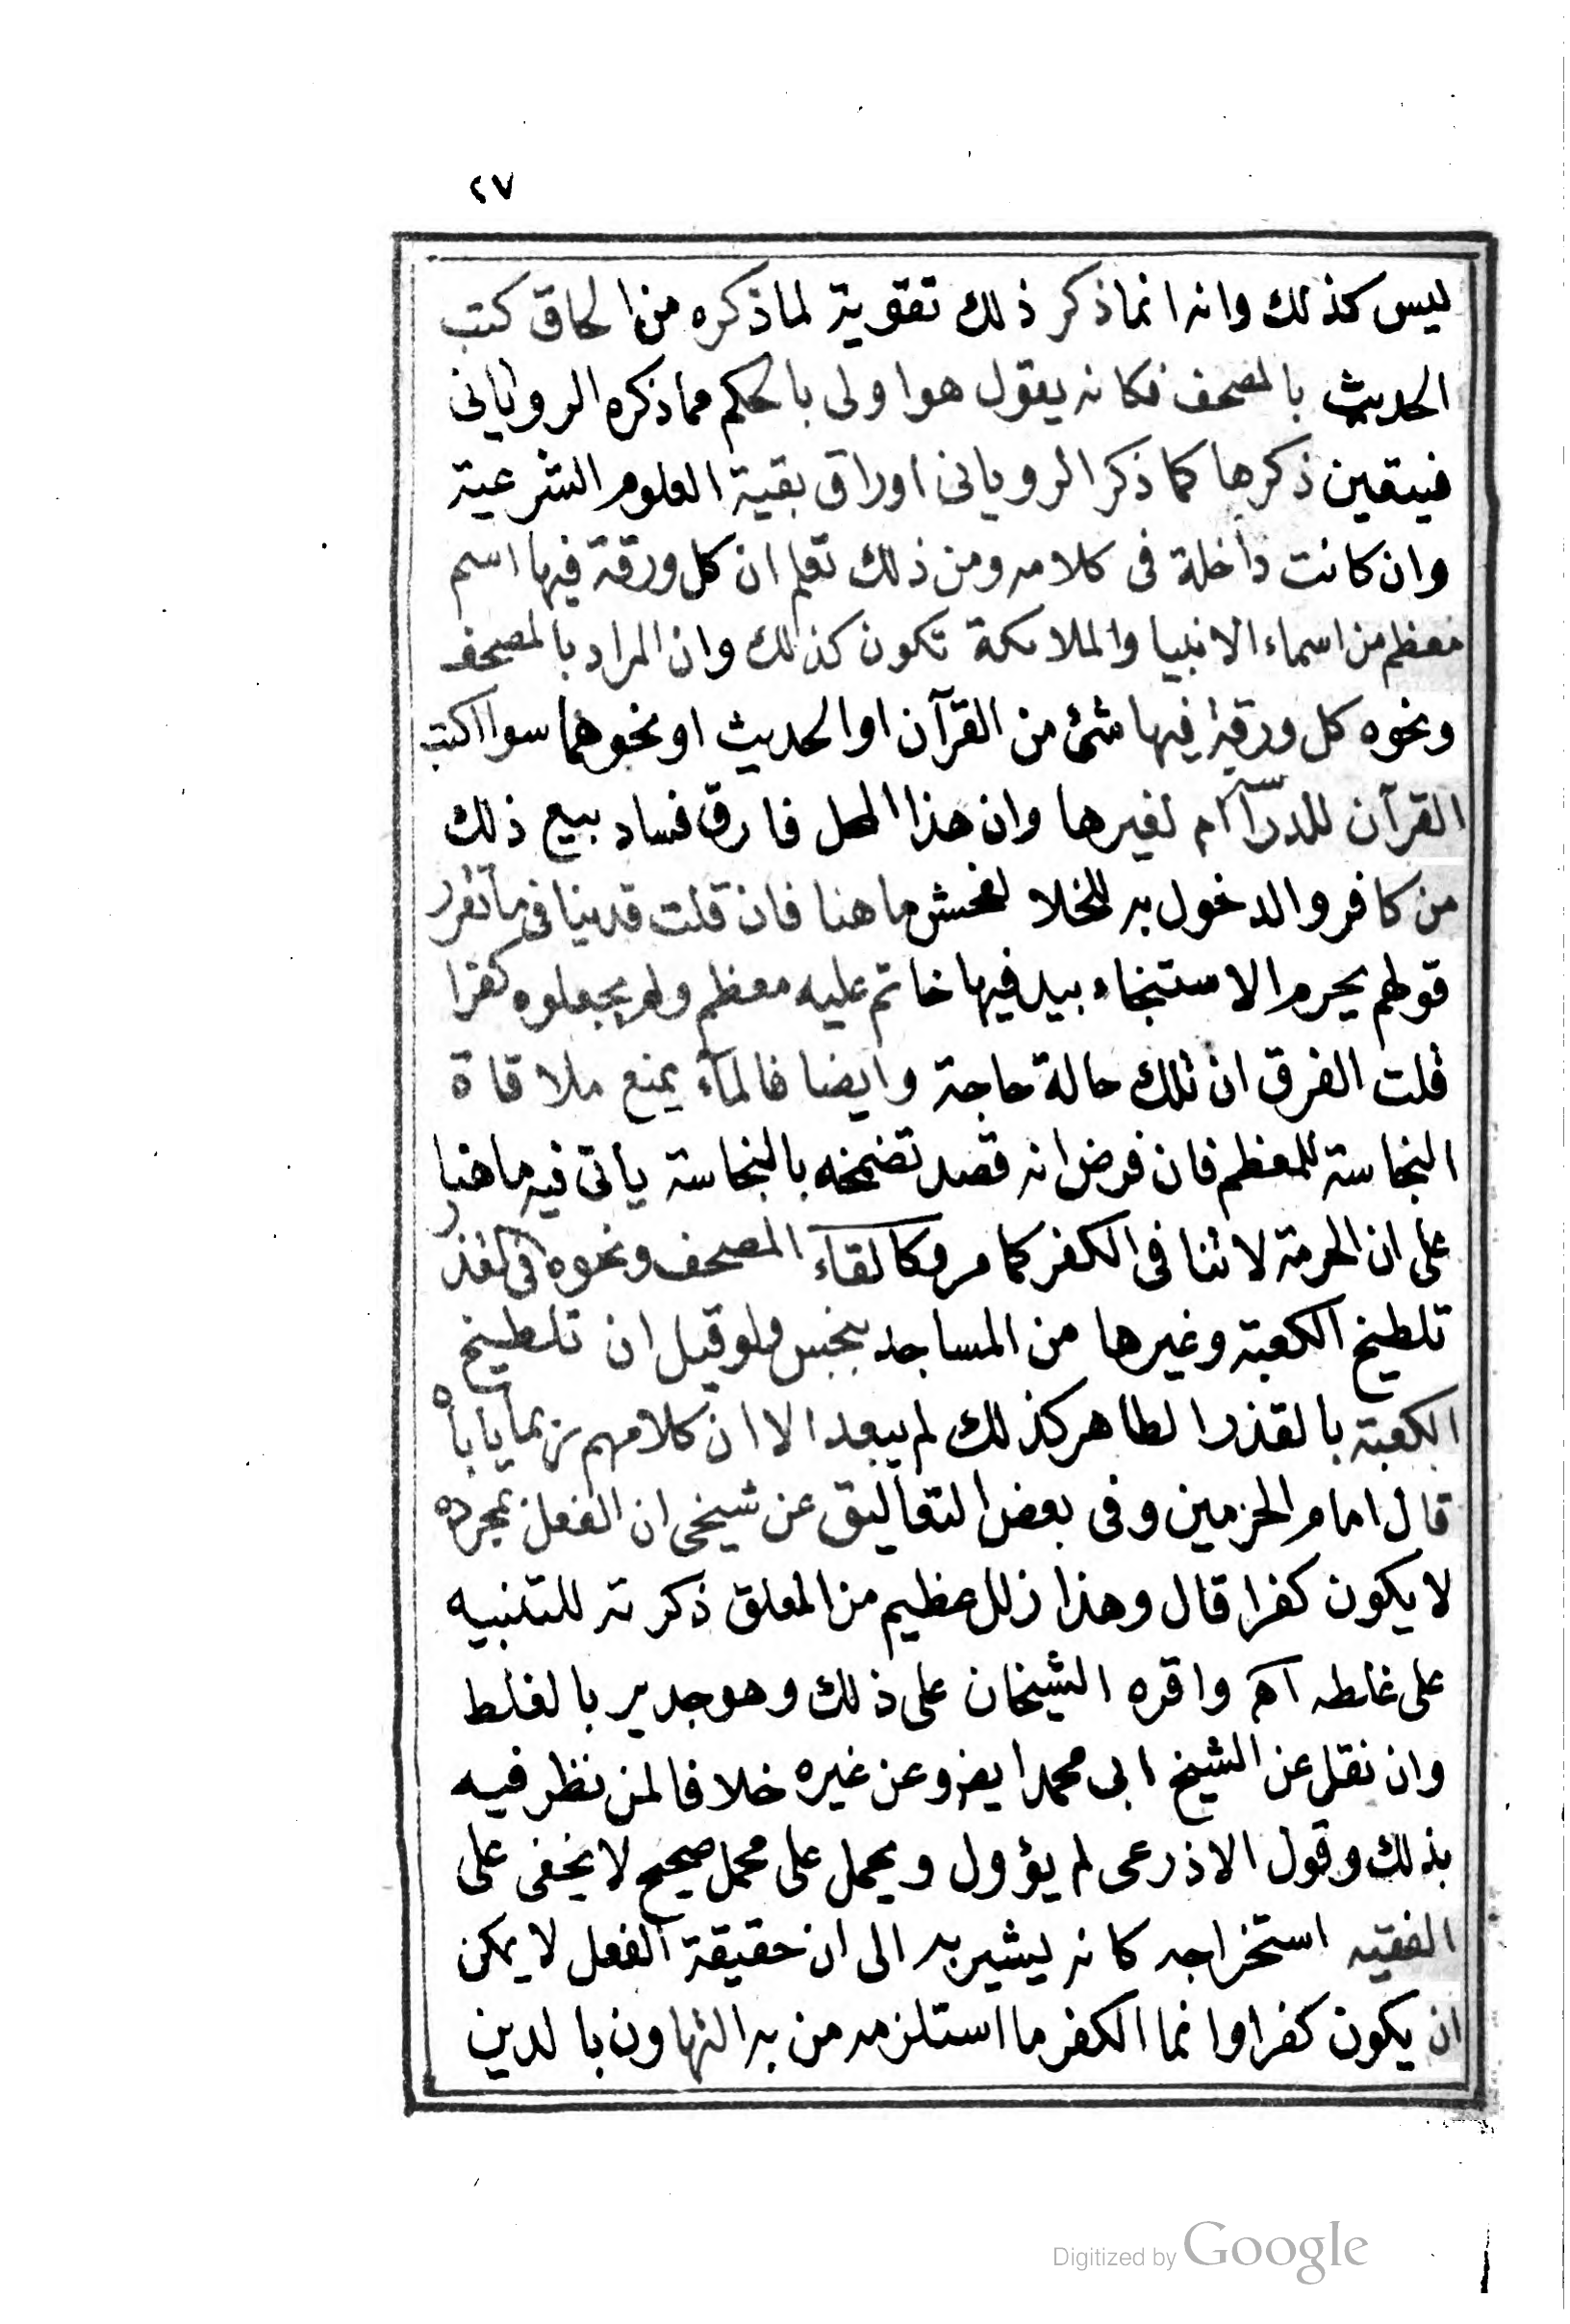 ٢٧
ليس كذلك وانه انما ذكر ذلك تقوية لما ذكره من الحاق كتب
الحديث بالمصحف فكانه يقول هو اولى بالحكم مما ذكره الروياني
فيتعين ذكرها كما ذكر الروياني اوراق بقية العلوم الشرعية
وان كانت داخلة فى كلامه ومن ذلك تعلم ان كل ورقة فيها اسم
معظم من اسماء الانبيا والملائكة تكون كذلك وان المراد بالمصحف
ونحوه كل ورقة فيها شئ من القرآن او الحديث او نحوهما سوا اكتب
القرآن للدراسة ام لغيرها وان هذا المحل فارق فساد بيع ذلك
من كافر والدخول به للخلا لفحش ما هنا فان قلت قد ينافى ما تقرر
قولهم يحرم الاستنجاء بيد فيها خاتم عليه معظم ولم يجعلوه كفرا
قلت الفرق ان تلك حالة حاجة وايضا فالمآء يمنع ملاقاة
النجاسة للمعظم فان فرض انه قصد تضمخه بالنجاسة ياتى فيه ما هنا
على ان الحرمة لا تنا فى الكفر كما مر وكالقاء المصحف ونحوه فى القذر
تلطيخ الكعبة وغيرها من المساجد بنجس ولو قيل ان تلطيخ
الكعبة بالقذر الطاهر كذلك لم يبعد الا ان كلامهم ربما ياباه
قال امام الحرمين وفى بعض التعاليق عن شيخى ان الفعل بمجرده
لا يكون كفرا قال وهذا زلل عظيم من المعلق ذكرته للتنبيه
على غلطه اه واقره الشيخان على ذلك وهو جدير بالغلط
وان نقل عن الشيخ ابى محمد ايض وعن غيره خلافا لمن نظر فيه
بذلك وقول الاذرعى لم يؤول ويحمل على محمل صحيح لا يخفى على
الفقيه استخراجه كانه يشير به الى ان حقيقة الفعل لا يمكن
ان يكون كفرا وانما الكفر ما استلزمه من به التهاون بالدين
Digitized by Google